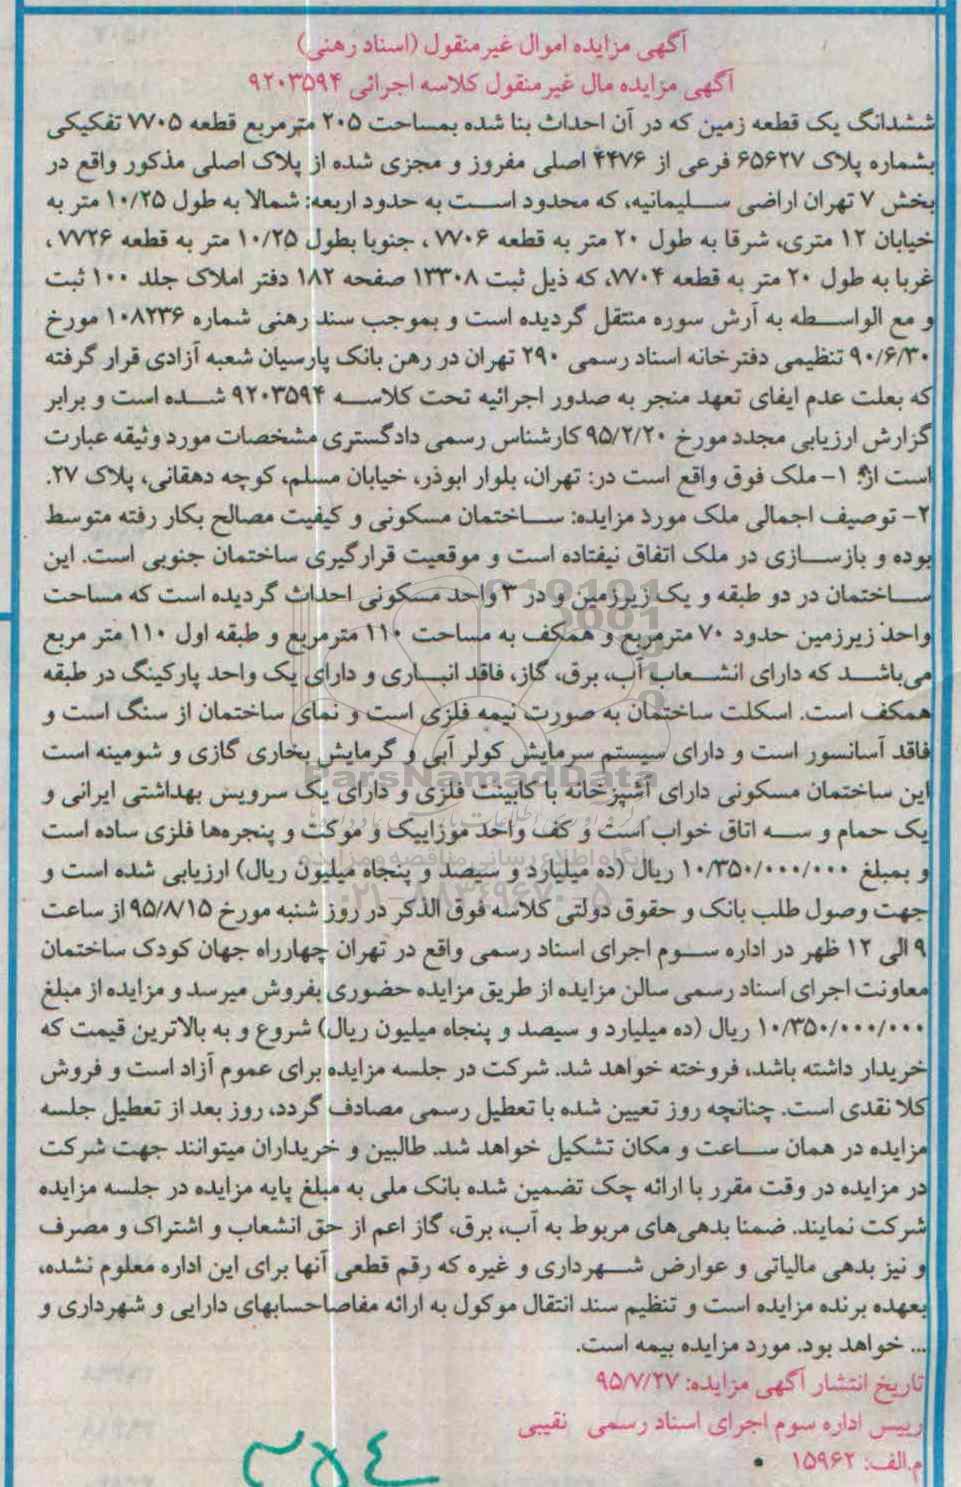 آگهی مزایده اموال غیرمنقول (اسناد رهنی)
آگهی مزایده مال غیرمنقول کلاسه اجرائی ۹۲۰۳۵۹۴
ششدانگ یک قطعه زمین که در آن احداث بنا شده بمساحت ۲۰۵ مترمربع قطعه ۷۷۰۵ تفکیکی
بشماره پلاک ۶۵۶۲۷ فرعی از ۴۴۷۶ اصلی مفروز و مجزی شده از پلاک اصلی مذکور واقع در
بخش ۷ تهران اراضی سلیمانیه، که محدود است به حدود اربعه: شمالا به طول ۱۰/۲۵ متر به
خیابان ۱۲ متری، شرقا به طول ۲۰ متر به قطعه ۷۷۰۶ ، جنوبا بطول ۱۰/۲۵ متر به قطعه ۷۷۲۶ ،
غربا به طول ۲۰ متر به قطعه ۷۷۰۴، که ذیل ثبت ۱۳۳۰۸ صفحه ۱۸۲ دفتر املاک جلد ۱۰۰ ثبت
و مع الواسطه به آرش سوره منتقل گردیده است و بموجب سند رهنی شماره ۱۰۸۲۳۶ مورخ
۹۰/۶/۳۰ تنظیمی دفترخانه اسناد رسمی ۲۹۰ تهران در رهن بانک پارسیان شعبه آزادی قرار گرفته
که بعلت عدم ایفای تعهد منجر به صدور اجرائیه تحت کلاسه ۹۲۰۳۵۹۴ شده است و برابر
گزارش ارزیابی مجدد مورخ ۹۵/۲/۲۰ کارشناس رسمی دادگستری مشخصات مورد وثیقه عبارت
است از: ۱- ملک فوق واقع است در: تهران، بلوار ابوذر، خیابان مسلم، کوچه دهقانی، پلاک ۲۷.
۲- توصیف اجمالی ملک مورد مزایده: ساختمان مسکونی و کیفیت مصالح بکار رفته متوسط
بوده و بازسازی در ملک اتفاق نیفتاده است و موقعیت قرارگیری ساختمان جنوبی است. این
ساختمان در دو طبقه و یک زیرزمین و در ۳ واحد مسکونی احداث گردیده است که مساحت
واحد زیرزمین حدود ۷۰ مترمربع و همکف به مساحت ۱۱۰ مترمربع و طبقه اول ۱۱۰ متر مربع
می‌باشد که دارای انشعاب آب، برق، گاز، فاقد انباری و دارای یک واحد پارکینگ در طبقه
همکف است. اسکلت ساختمان به صورت نیمه فلزی است و نمای ساختمان از سنگ است و
فاقد آسانسور است و دارای سیستم سرمایش کولر آبی و گرمایش بخاری گازی و شومینه است
این ساختمان مسکونی دارای آشپزخانه با کابینت فلزی و دارای یک سرویس بهداشتی ایرانی و
یک حمام و سه اتاق خواب است و کف واحد موزاییک و موکت و پنجره‌ها فلزی ساده است
و بمبلغ ۱۰/۳۵۰/۰۰۰/۰۰۰ ریال (ده میلیارد و سیصد و پنجاه میلیون ریال) ارزیابی شده است و
جهت وصول طلب بانک و حقوق دولتی کلاسه فوق الذکر در روز شنبه مورخ ۹۵/۸/۱۵ از ساعت
۹ الی ۱۲ ظهر در اداره سوم اجرای اسناد رسمی واقع در تهران چهارراه جهان کودک ساختمان
معاونت اجرای اسناد رسمی سالن مزایده از طریق مزایده حضوری بفروش میرسد و مزایده از مبلغ
۱۰/۳۵۰/۰۰۰/۰۰۰ ریال (ده میلیارد و سیصد و پنجاه میلیون ریال) شروع و به بالاترین قیمت که
خریدار داشته باشد، فروخته خواهد شد. شرکت در جلسه مزایده برای عموم آزاد است و فروش
کلا نقدی است. چنانچه روز تعیین شده با تعطیل رسمی مصادف گردد، روز بعد از تعطیل جلسه
مزایده در همان ساعت و مکان تشکیل خواهد شد. طالبین و خریداران میتوانند جهت شرکت
در مزایده در وقت مقرر با ارائه چک تضمین شده بانک ملی به مبلغ پایه مزایده در جلسه مزایده
شرکت نمایند. ضمنا بدهی‌های مربوط به آب، برق، گاز اعم از حق انشعاب و اشتراک و مصرف
و نیز بدهی مالیاتی و عوارض شهرداری و غیره که رقم قطعی آنها برای این اداره معلوم نشده،
بعهده برنده مزایده است و تنظیم سند انتقال موکول به ارائه مفاصاحسابهای دارایی و شهرداری و
... خواهد بود. مورد مزایده بیمه است.
تاریخ انتشار آگهی مزایده: ۹۵/۷/۲۷
رییس اداره سوم اجرای اسناد رسمی نقیبی
م.الف: ۱۵۹۶۲
ParsNamadData
پایگاه اطلاع رسانی مناقصه و مزایده